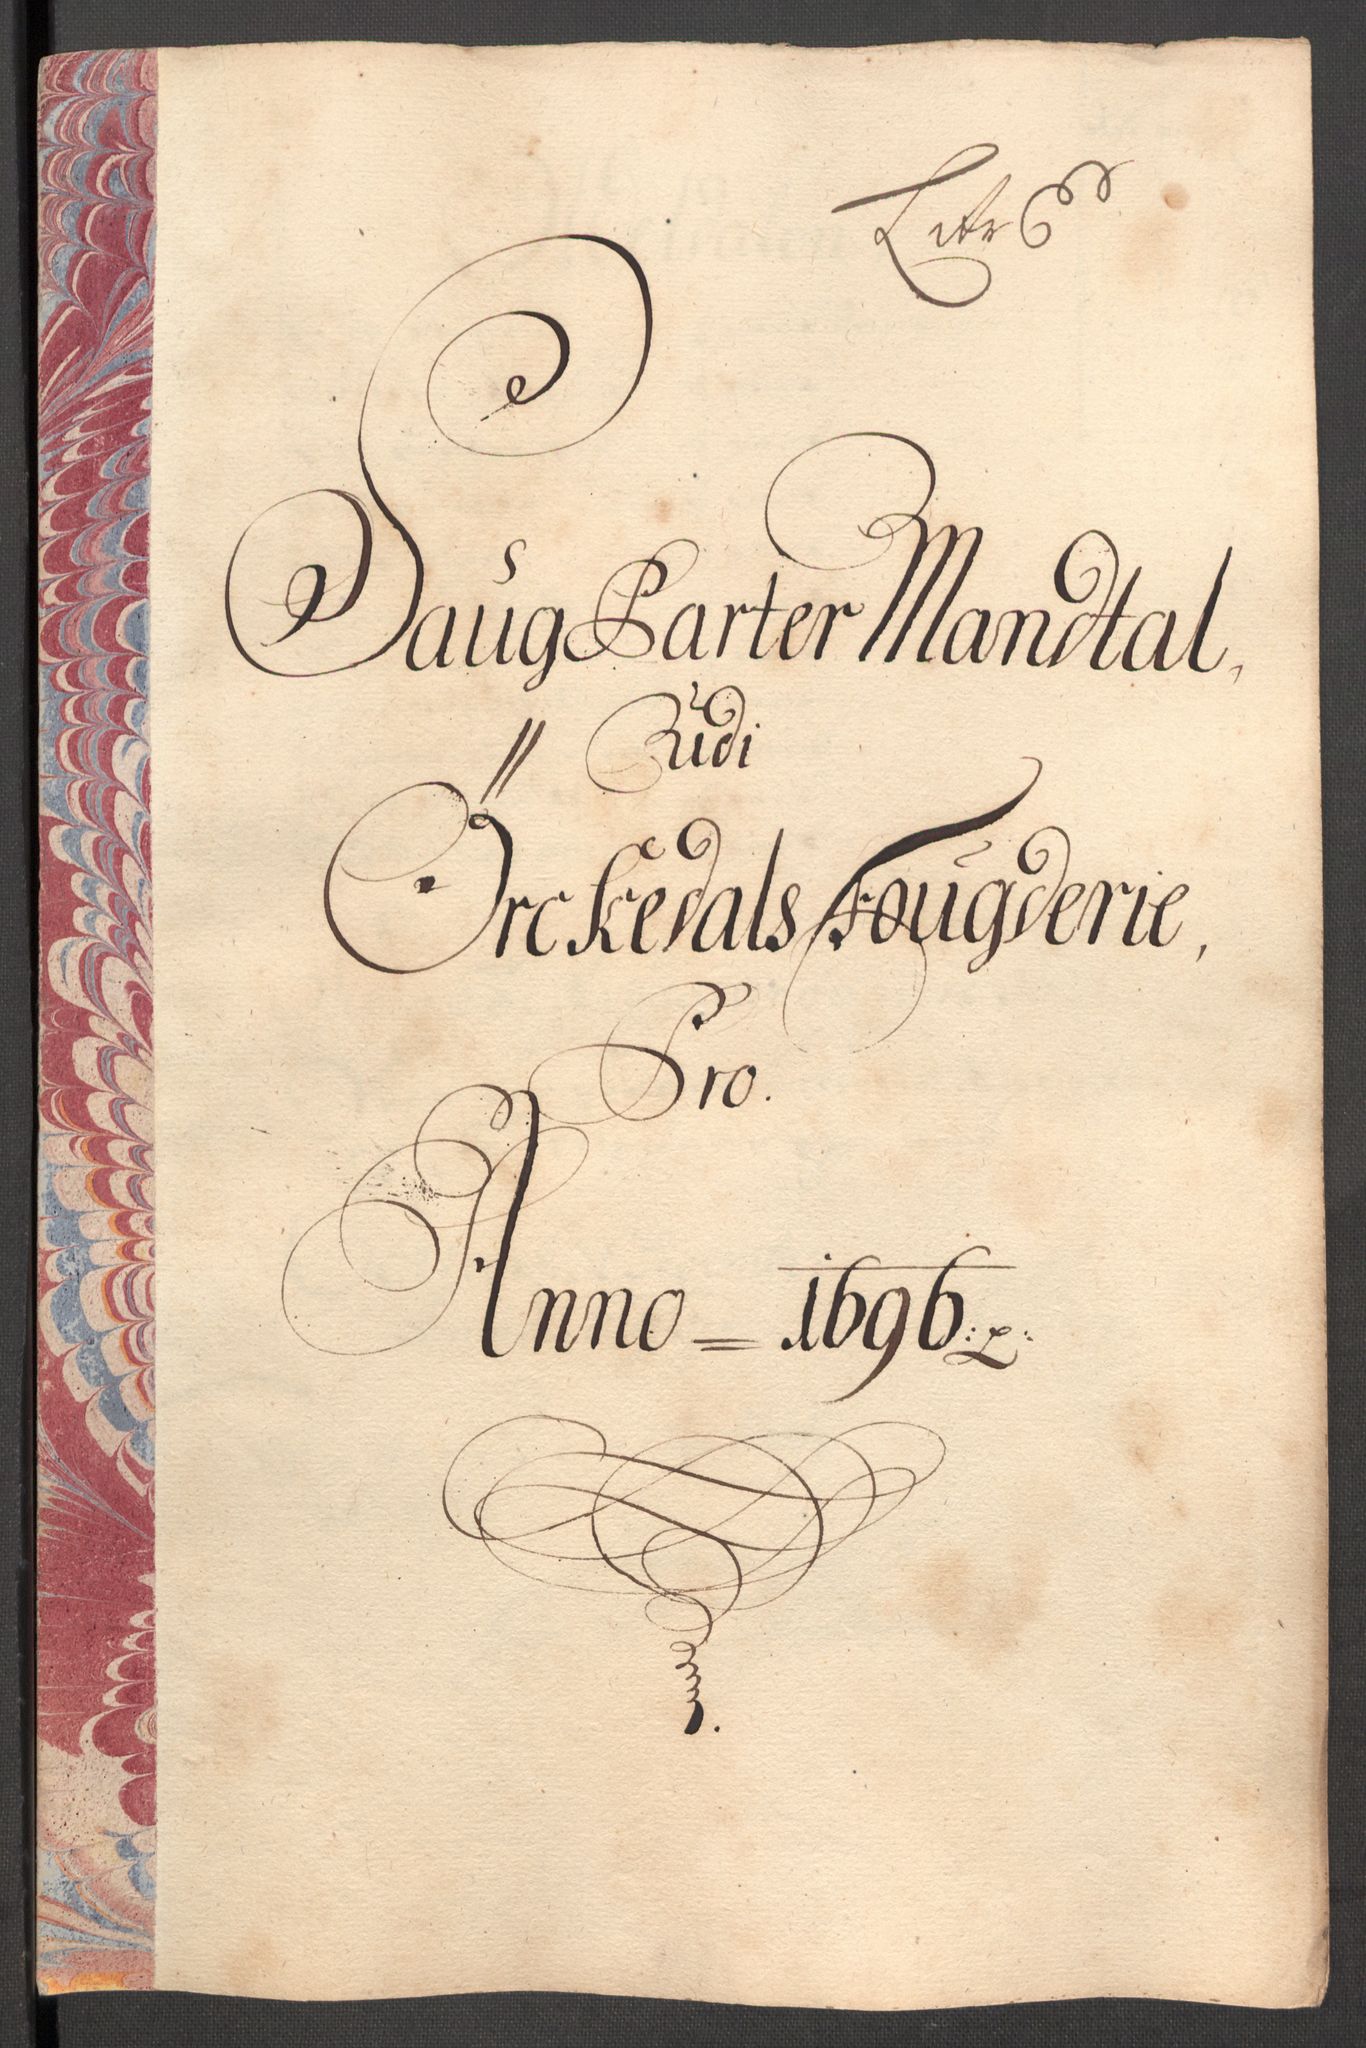 Litr G
Saug Parter Mandtal,
Udi
Örckedals Fougderie,
Pro.
Anno = 1696